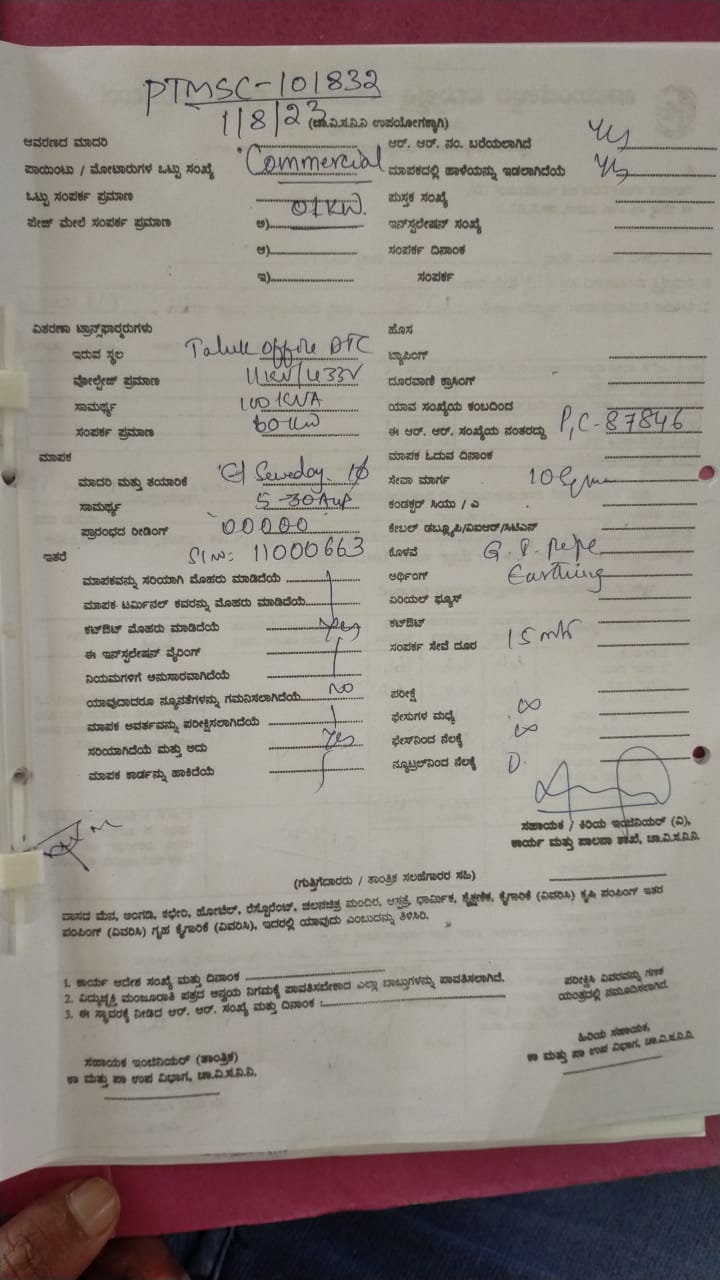 PTMSC-101832
1/8/23 (ಚಾ.ವಿ.ಸ.ನಿ.ನಿ ಉಪಯೋಗಕ್ಕಾಗಿ)
ಆವರಣದ ಮಾದರಿ
ಪಾಯಿಂಟು / ಮೋಟಾರುಗಳ ಒಟ್ಟು ಸಂಖ್ಯೆ Commercial
ಒಟ್ಟು ಸಂಪರ್ಕ ಪ್ರಮಾಣ
ಪೇಜ್ ಮೇಲೆ ಸಂಪರ್ಕ ಪ್ರಮಾಣ ಅ) 01KW.
ಆ)
ಇ)
ಆರ್. ಆರ್. ನಂ. ಬರೆಯಲಾಗಿದೆ
ಮಾಪಕದಲ್ಲಿ ಹಾಳೆಯನ್ನು ಇಡಲಾಗಿದೆಯೆ
ಪುಸ್ತಕ ಸಂಖ್ಯೆ
ಇನ್‌ಸ್ಟಲೇಷನ್ ಸಂಖ್ಯೆ
ಸಂಪರ್ಕ ದಿನಾಂಕ
ಸಂಪರ್ಕ
ವಿತರಣಾ ಟ್ರಾನ್ಸ್‌ಫಾರ್ಮರುಗಳು
ಇರುವ ಸ್ಥಲ Taluk office DTC
ವೋಲ್ಟೇಜ್ ಪ್ರಮಾಣ 11KV/433V
ಸಾಮರ್ಥ್ಯ 100KVA
ಸಂಪರ್ಕ ಪ್ರಮಾಣ 60KW
ಮಾಪಕ
ಮಾದರಿ ಮತ್ತು ತಯಾರಿಕೆ
ಸಾಮರ್ಥ್ಯ 5-30Amp
ಪ್ರಾರಂಭದ ರೀಡಿಂಗ್ 00000
ಇತರೆ Sl No: 11000663
ಮಾಪಕವನ್ನು ಸರಿಯಾಗಿ ಮೊಹರು ಮಾಡಿದೆಯೆ
ಮಾಪಕ ಟರ್ಮಿನಲ್ ಕವರನ್ನು ಮೊಹರು ಮಾಡಿದೆಯೆ
ಕಟ್‌ಔಟ್ ಮೊಹರು ಮಾಡಿದೆಯೆ Yes
ಈ ಇನ್‌ಸ್ಟಲೇಷನ್ ವೈರಿಂಗ್
ನಿಯಮಗಳಿಗೆ ಅನುಸಾರವಾಗಿದೆಯೆ
ಯಾವುದಾದರೂ ನ್ಯೂನತೆಗಳನ್ನು ಗಮನಿಸಲಾಗಿದೆಯೆ NO
ಮಾಪಕ ಆವರ್ತವನ್ನು ಪರೀಕ್ಷಿಸಲಾಗಿದೆಯೆ
ಸರಿಯಾಗಿದೆಯೆ ಮತ್ತು ಅದು Yes
ಮಾಪಕ ಕಾರ್ಡನ್ನು ಹಾಕಿದೆಯೆ
ಹೊಸ
ಟ್ಯಾಪಿಂಗ್
ದೂರವಾಣಿ ಕ್ರಾಸಿಂಗ್
ಯಾವ ಸಂಖ್ಯೆಯ ಕಂಬದಿಂದ
ಈ ಆರ್. ಆರ್. ಸಂಖ್ಯೆಯ ನಂತರದ್ದು P,C-87846
ಮಾಪಕ ಓದುವ ದಿನಾಂಕ
ಸೇವಾ ಮಾರ್ಗ
ಕಂಡಕ್ಟರ್ ಸಿಯು / ಎ
ಕೇಬಲ್ ಡಬ್ಲ್ಯೂಪಿ/ವಿಐಆರ್/ಸಿಟಿಎಸ್
ಕೊಳವೆ G.I. pipe
ಅರ್ಥಿಂಗ್ Earthing
ಏರಿಯಲ್ ಫ್ಯೂಸ್
ಕಟ್‌ಔಟ್
ಸಂಪರ್ಕ ಸೇವೆ ದೂರ 15 mtr
ಪರೀಕ್ಷೆ
ಫೇಸುಗಳ ಮಧ್ಯೆ ∞
ಫೇಸ್‌ನಿಂದ ನೆಲಕ್ಕೆ ∞
ನ್ಯೂಟ್ರಲ್‌ನಿಂದ ನೆಲಕ್ಕೆ 0
ಸಹಾಯಕ / ಕಿರಿಯ ಇಂಜಿನಿಯರ್ (ವಿ),
ಕಾರ್ಯ ಮತ್ತು ಪಾಲನಾ ಶಾಖೆ, ಚಾ.ವಿ.ಸ.ನಿ.ನಿ
(ಗುತ್ತಿಗೆದಾರರು / ತಾಂತ್ರಿಕ ಸಲಹೆಗಾರರ ಸಹಿ)
ವಾಸದ ಮನೆ, ಅಂಗಡಿ, ಕಛೇರಿ, ಹೋಟೆಲ್, ರೆಸ್ಟೋರೆಂಟ್, ಚಲನಚಿತ್ರ ಮಂದಿರ, ಆಸ್ಪತ್ರೆ, ಧಾರ್ಮಿಕ, ಶೈಕ್ಷಣಿಕ, ಕೈಗಾರಿಕೆ (ವಿವರಿಸಿ) ಕೃಷಿ ಪಂಪಿಂಗ್ ಇತರ
ಪಂಪಿಂಗ್ (ವಿವರಿಸಿ) ಗೃಹ ಕೈಗಾರಿಕೆ (ವಿವರಿಸಿ), ಇದರಲ್ಲಿ ಯಾವುದು ಎಂಬುದನ್ನು ತಿಳಿಸಿರಿ.
1. ಕಾರ್ಯ ಆದೇಶ ಸಂಖ್ಯೆ ಮತ್ತು ದಿನಾಂಕ
2. ವಿದ್ಯುಚ್ಛಕ್ತಿ ಮಂಜೂರಾತಿ ಪತ್ರದ ಅನ್ವಯ ನಿಗಮಕ್ಕೆ ಪಾವತಿಸಬೇಕಾದ ಎಲ್ಲಾ ಬಾಬ್ತುಗಳನ್ನು ಪಾವತಿಸಲಾಗಿದೆ.
3. ಈ ಸ್ಥಾವರಕ್ಕೆ ನೀಡಿದ ಆರ್. ಆರ್. ಸಂಖ್ಯೆ ಮತ್ತು ದಿನಾಂಕ :
ಪರೀಕ್ಷಿಸಿ ವಿವರವನ್ನು ಗಣಕ
ಯಂತ್ರದಲ್ಲಿ ನಮೂದಿಸಲಾಗಿದೆ.
ಸಹಾಯಕ ಇಂಜಿನಿಯರ್ (ತಾಂತ್ರಿಕ)
ಕಾ ಮತ್ತು ಪಾ ಉಪ ವಿಭಾಗ, ಚಾ.ವಿ.ಸ.ನಿ.ನಿ.
ಹಿರಿಯ ಸಹಾಯಕ,
ಕಾ ಮತ್ತು ಪಾ ಉಪ ವಿಭಾಗ, ಚಾ.ವಿ.ಸ.ನಿ.ನಿ.